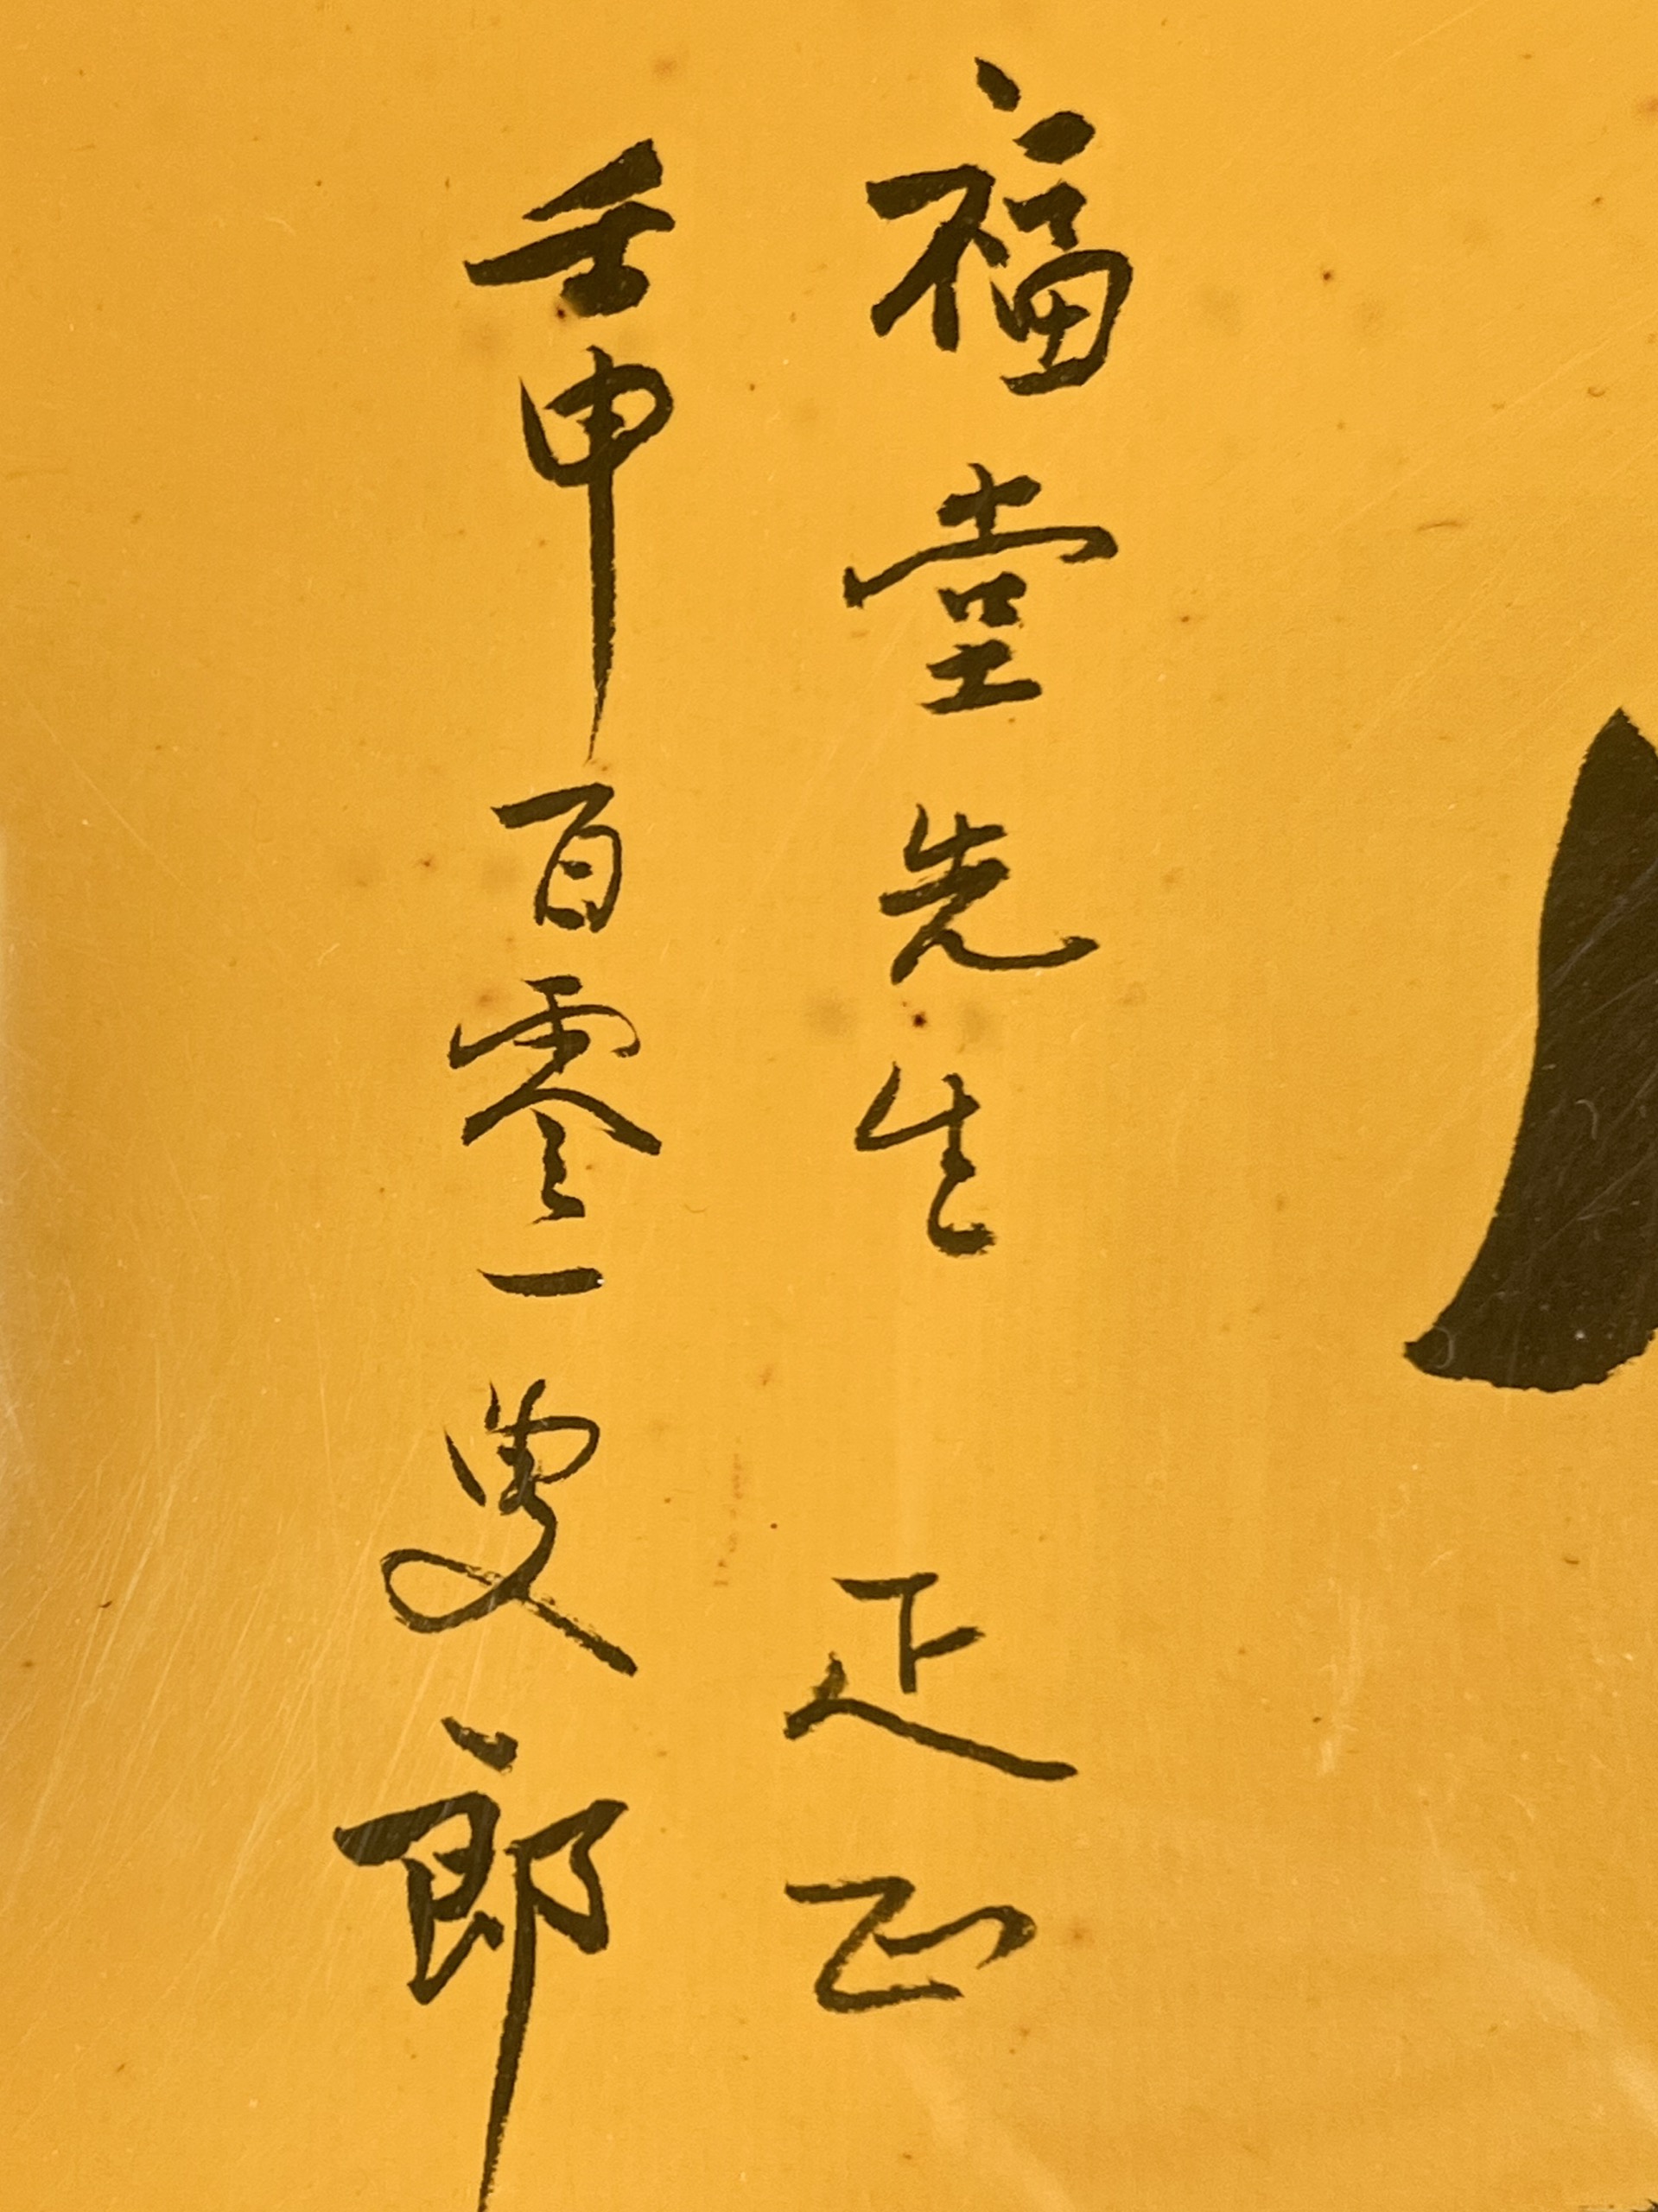 福堂先生 疋正
壬申百零一叟郎